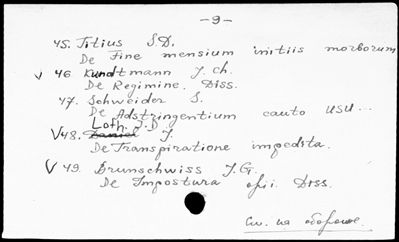 -9-
45. Titius S.D.
De Fine mensium initiis morborum
V 46. Kundtmann J. Ch.
De Regimine. Diss.
47. Schweider S.
De Adstringentium cauto usu...
Loth. J.D.
V 48. Daniel J.
De Transpiratione impedita.
V 49. Brunschwiss J.G.
De Impostura opii. Diss.
См. на обороте.